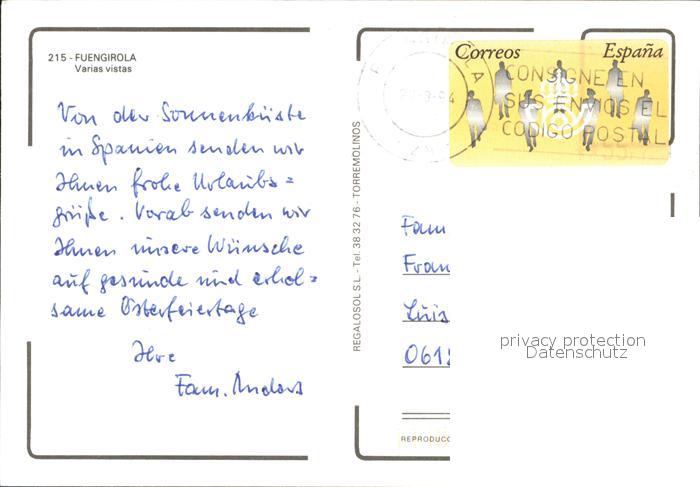 215 - FUENGIROLA
Varias vistas
Von der Sonnenküste
in Spanien senden wir
Ihnen frohe Urlaubs=
grüße. Vorab senden wir
Ihnen unsere Wünsche
auf gesunde und erhol=
same Osterfeiertage
Ihre
Fam. Anders
REGALOSOL S.L. - Tel. 38 32 76 - TORREMOLINOS
Correos España
CONSIGNE EN
SUS ENVIOS EL
CODIGO POSTAL
Fam
Fran
Luis
061
privacy protection
Datenschutz
REPRODUC